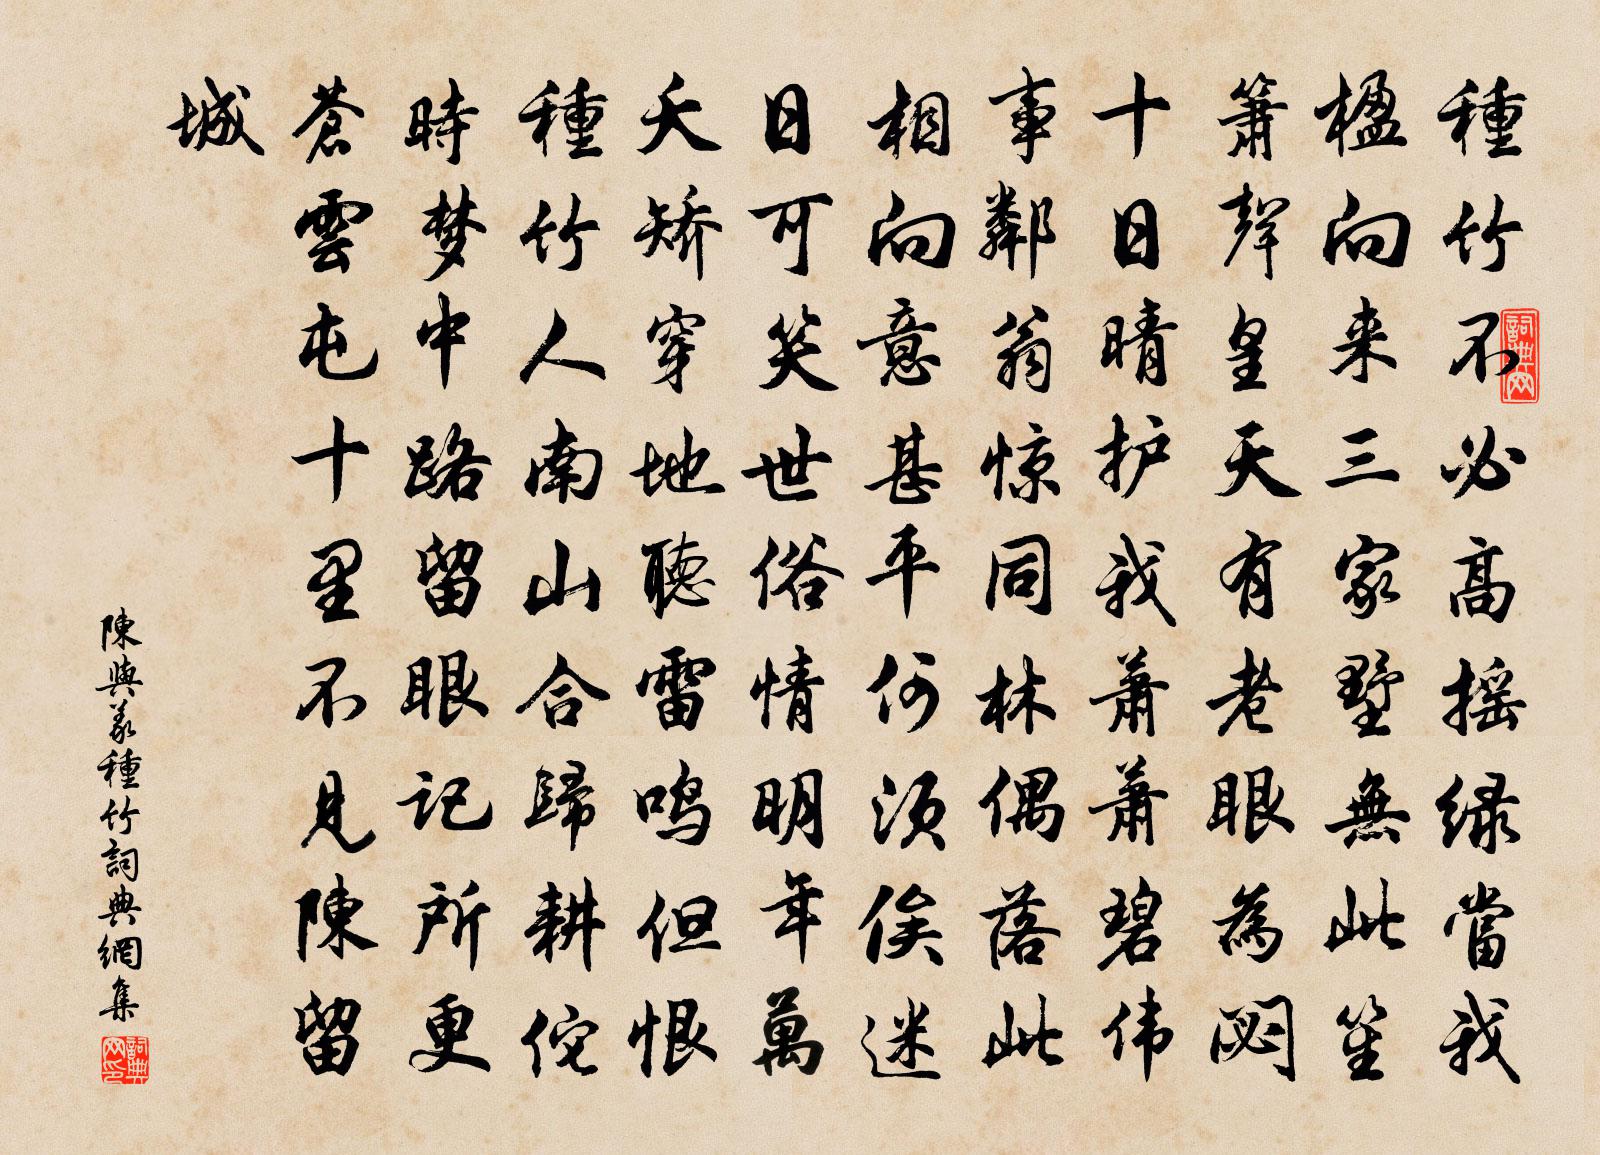 種竹不必高摇绿當我
楹向来三家墅無此笙
箫聲皇天有老眼為閟
十日晴护我萧萧碧伟
事鄰翁惊同林偶落此
相向意甚平何须俟迷
日可笑世俗情明年萬
夭矫穿地聴雷鸣但恨
種竹人南山合歸耕侘
時梦中路留眼记所更
蒼雲屯十里不見陳留
城
陳與義種竹詞典網集
詞典网
詞典网印